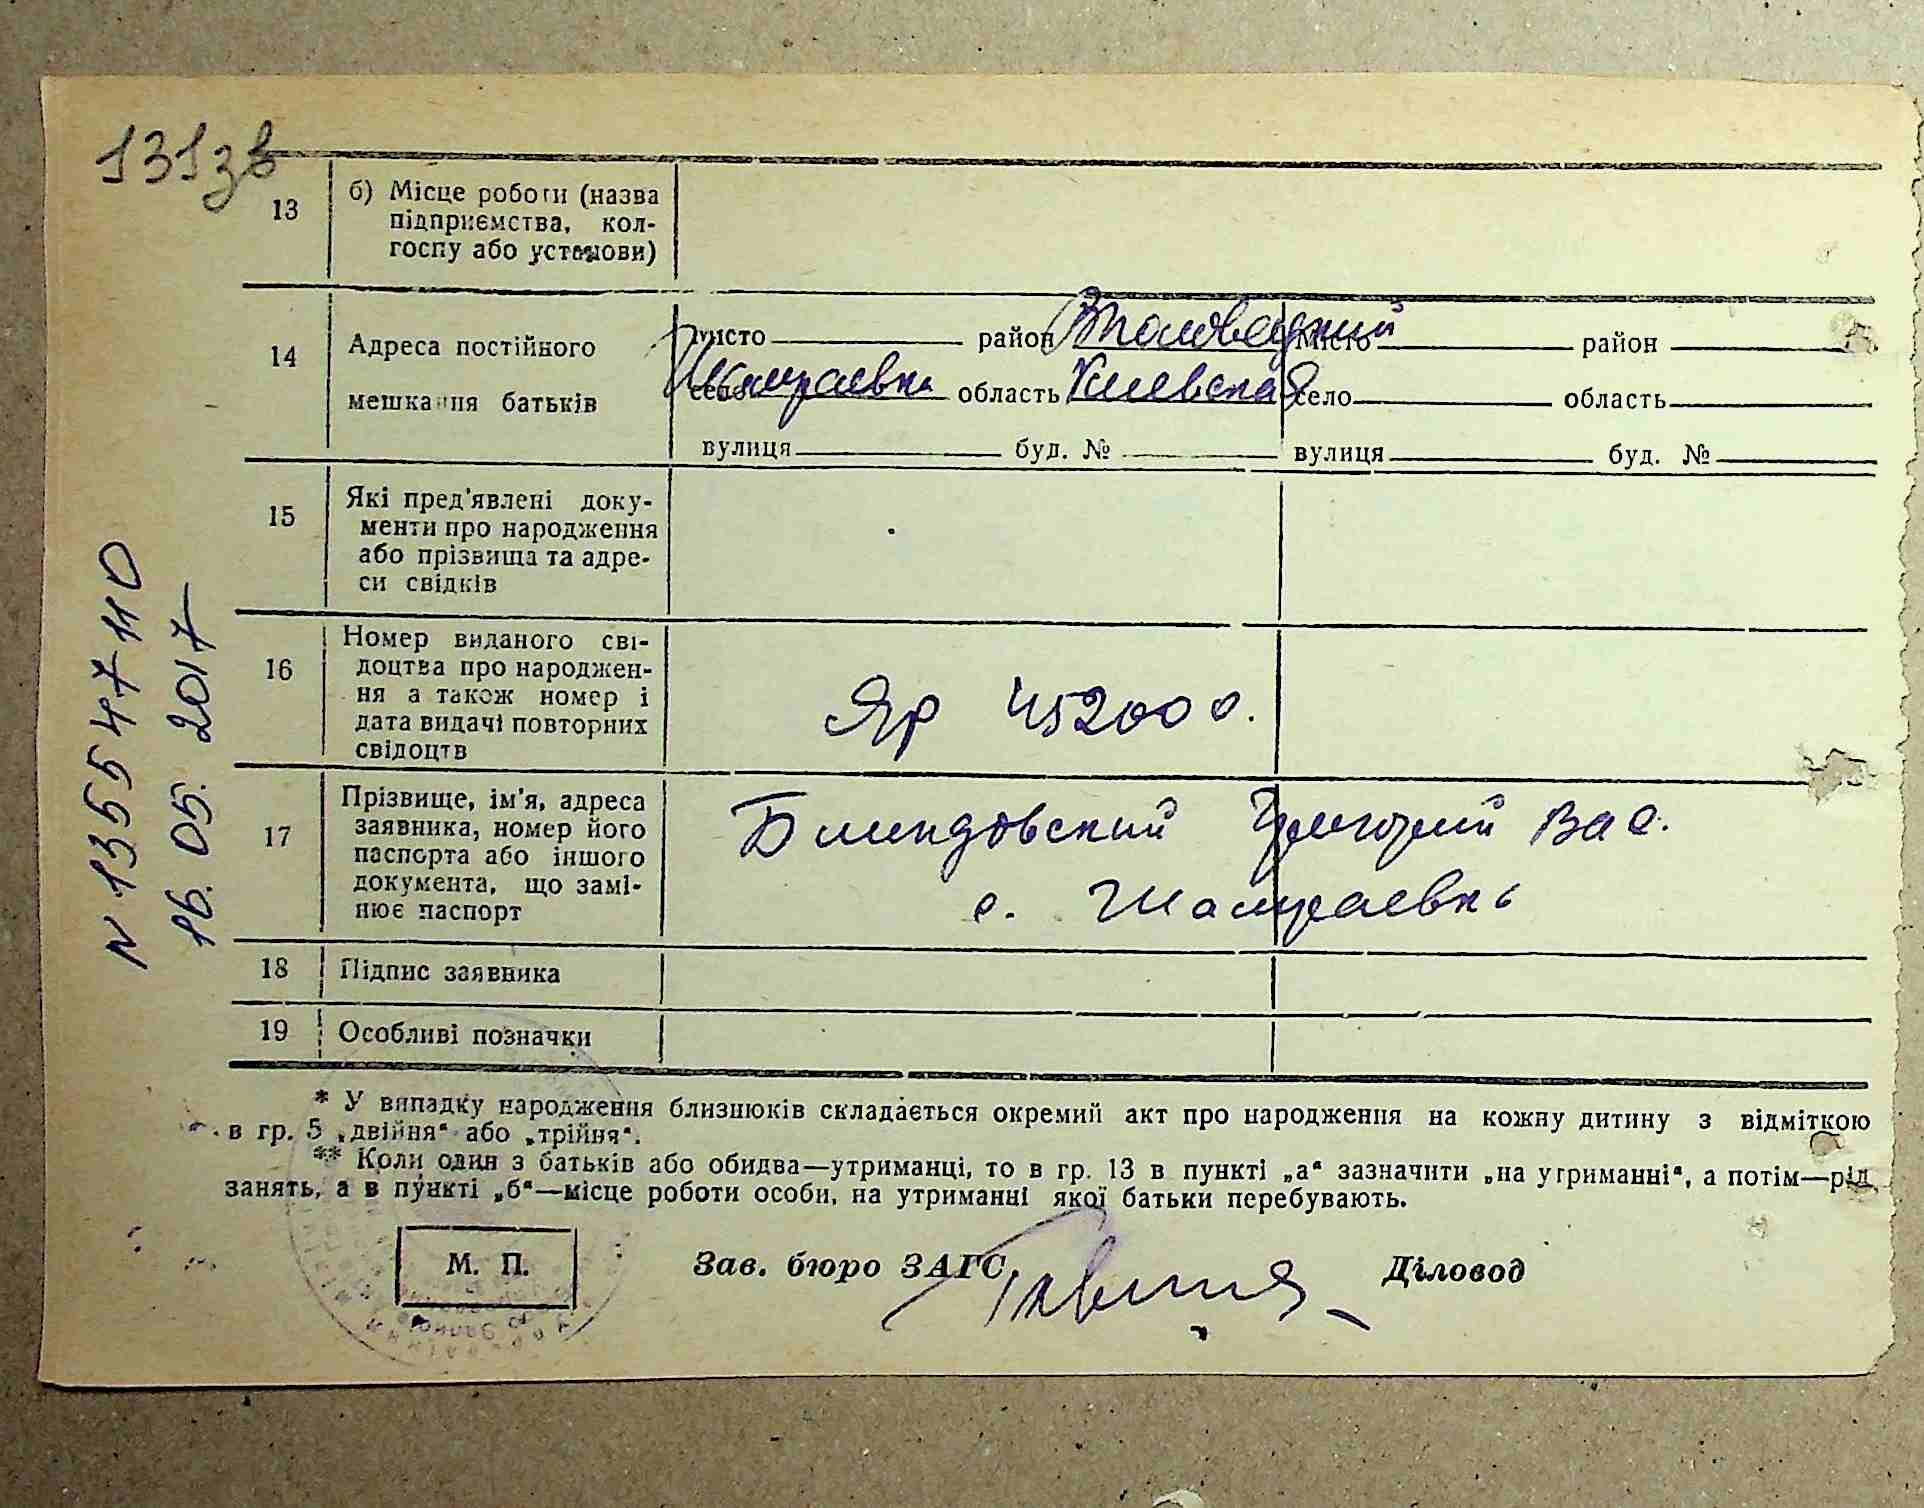 131зв
13 б) Місце роботи (назва
підприємства, кол-
госпу або установи)
14 Адреса постійного
мешкання батьків
місто район місто район
село Шамраевка область Киевская село область
вулиця буд. № вулиця буд. №
15 Які пред'явлені доку-
менти про народження
або прізвища та адре-
си свідків
16 Номер виданого сві-
доцтва про народжен-
ня а також номер і
дата видачі повторних
свідоцтв
Яр 452000.
17 Прізвище, ім'я, адреса
заявника, номер його
паспорта або іншого
документа, що замі-
нює паспорт
Блиндовский Григорий Вас.
с. Шамраевкь
18 Підпис заявника
19 Особливі позначки
* У випадку народження близнюків складається окремий акт про народження на кожну дитину з відміткою
в гр. 5 „двійня“ або „трійня“.
** Коли один з батьків або обидва—утриманці, то в гр. 13 в пункті „а“ зазначити „на утриманні“, а потім—рід
занять, а в пункті „б“—місце роботи особи, на утриманні якої батьки перебувають.
М. П.
Зав. бюро ЗАГС Діловод
N 1355 47 110
16. 05. 2017